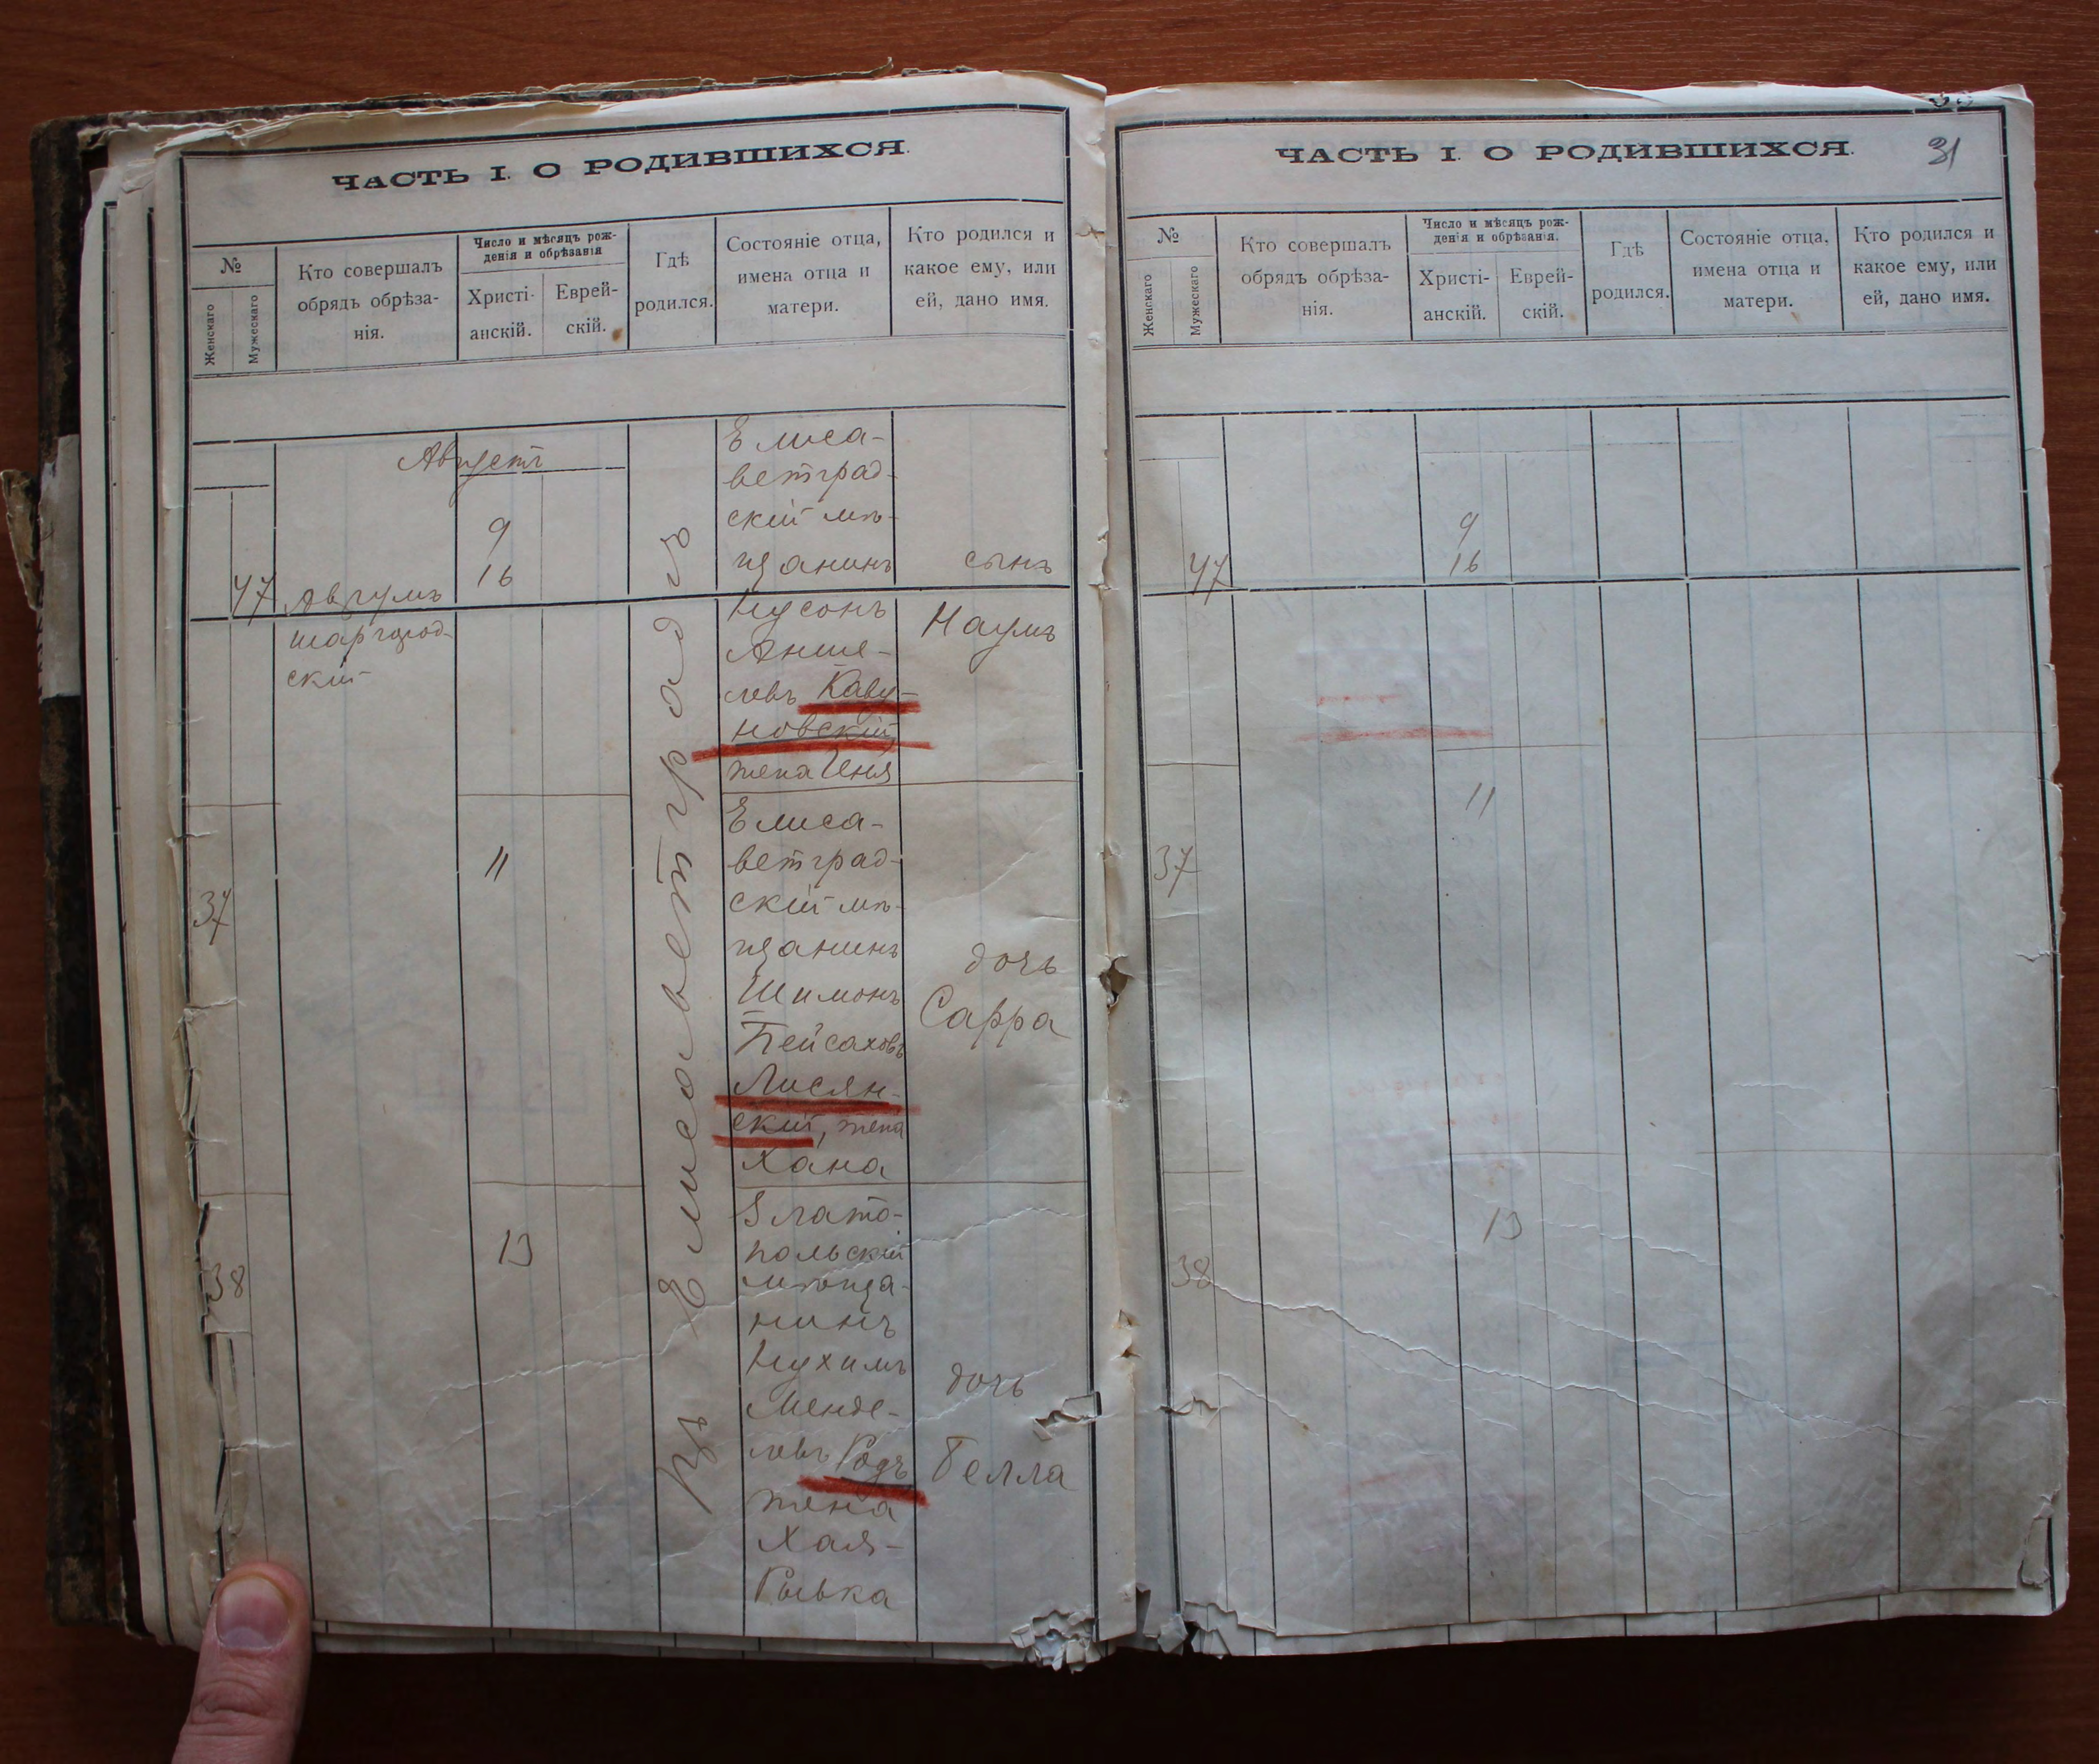 ЧАСТЬ I. О РОДИВШИХСЯ.
№
Женскаго
Мужескаго
Кто совершалъ
обрядъ обрѣза-
нія.
Число и мѣсяцъ рож-
денія и обрѣзанія
Христі-
анскій.
Еврей-
скій.
Гдѣ
родился.
Состояніе отца,
имена отца и
матери.
Кто родился и
какое ему, или
ей, дано имя.
Августъ
47
Аврумъ
шаргород-
скій
9
16
Въ Елисаветградѣ
Елиса-
ветград-
скій мѣ-
щанинъ
Нусонъ
Анше-
левъ Каву-
новскій,
жена Еня
сынъ
Наумъ
37
11
Елиса-
ветград-
скій мѣ-
щанинъ
Шимонъ
Пейсаховъ
Лисян-
скій, жена
Хана
дочь
Сарра
38
13
Злато-
польскій
мѣща-
нинъ
Нухимъ
Менде-
левъ Родъ
жена
Хая-
Рывка
дочь
Белла
ЧАСТЬ I. О РОДИВШИХСЯ.
31
№
Женскаго
Мужескаго
Кто совершалъ
обрядъ обрѣза-
нія.
Число и мѣсяцъ рож-
денія и обрѣзанія.
Христі-
анскій.
Еврей-
скій.
Гдѣ
родился.
Состояніе отца,
имена отца и
матери.
Кто родился и
какое ему, или
ей, дано имя.
47
9
16
37
11
38
13